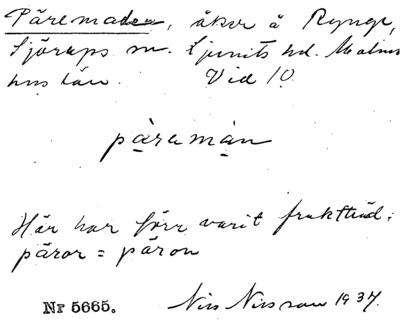 Päremaden, åker å Rynge,
Sjörups sn. Ljunits hd. Malmö
hus län. Vid 10
päremån
Här har förr varit fruktträd;
päror = päron
Nr 5665. Nils Nilsson 1937.